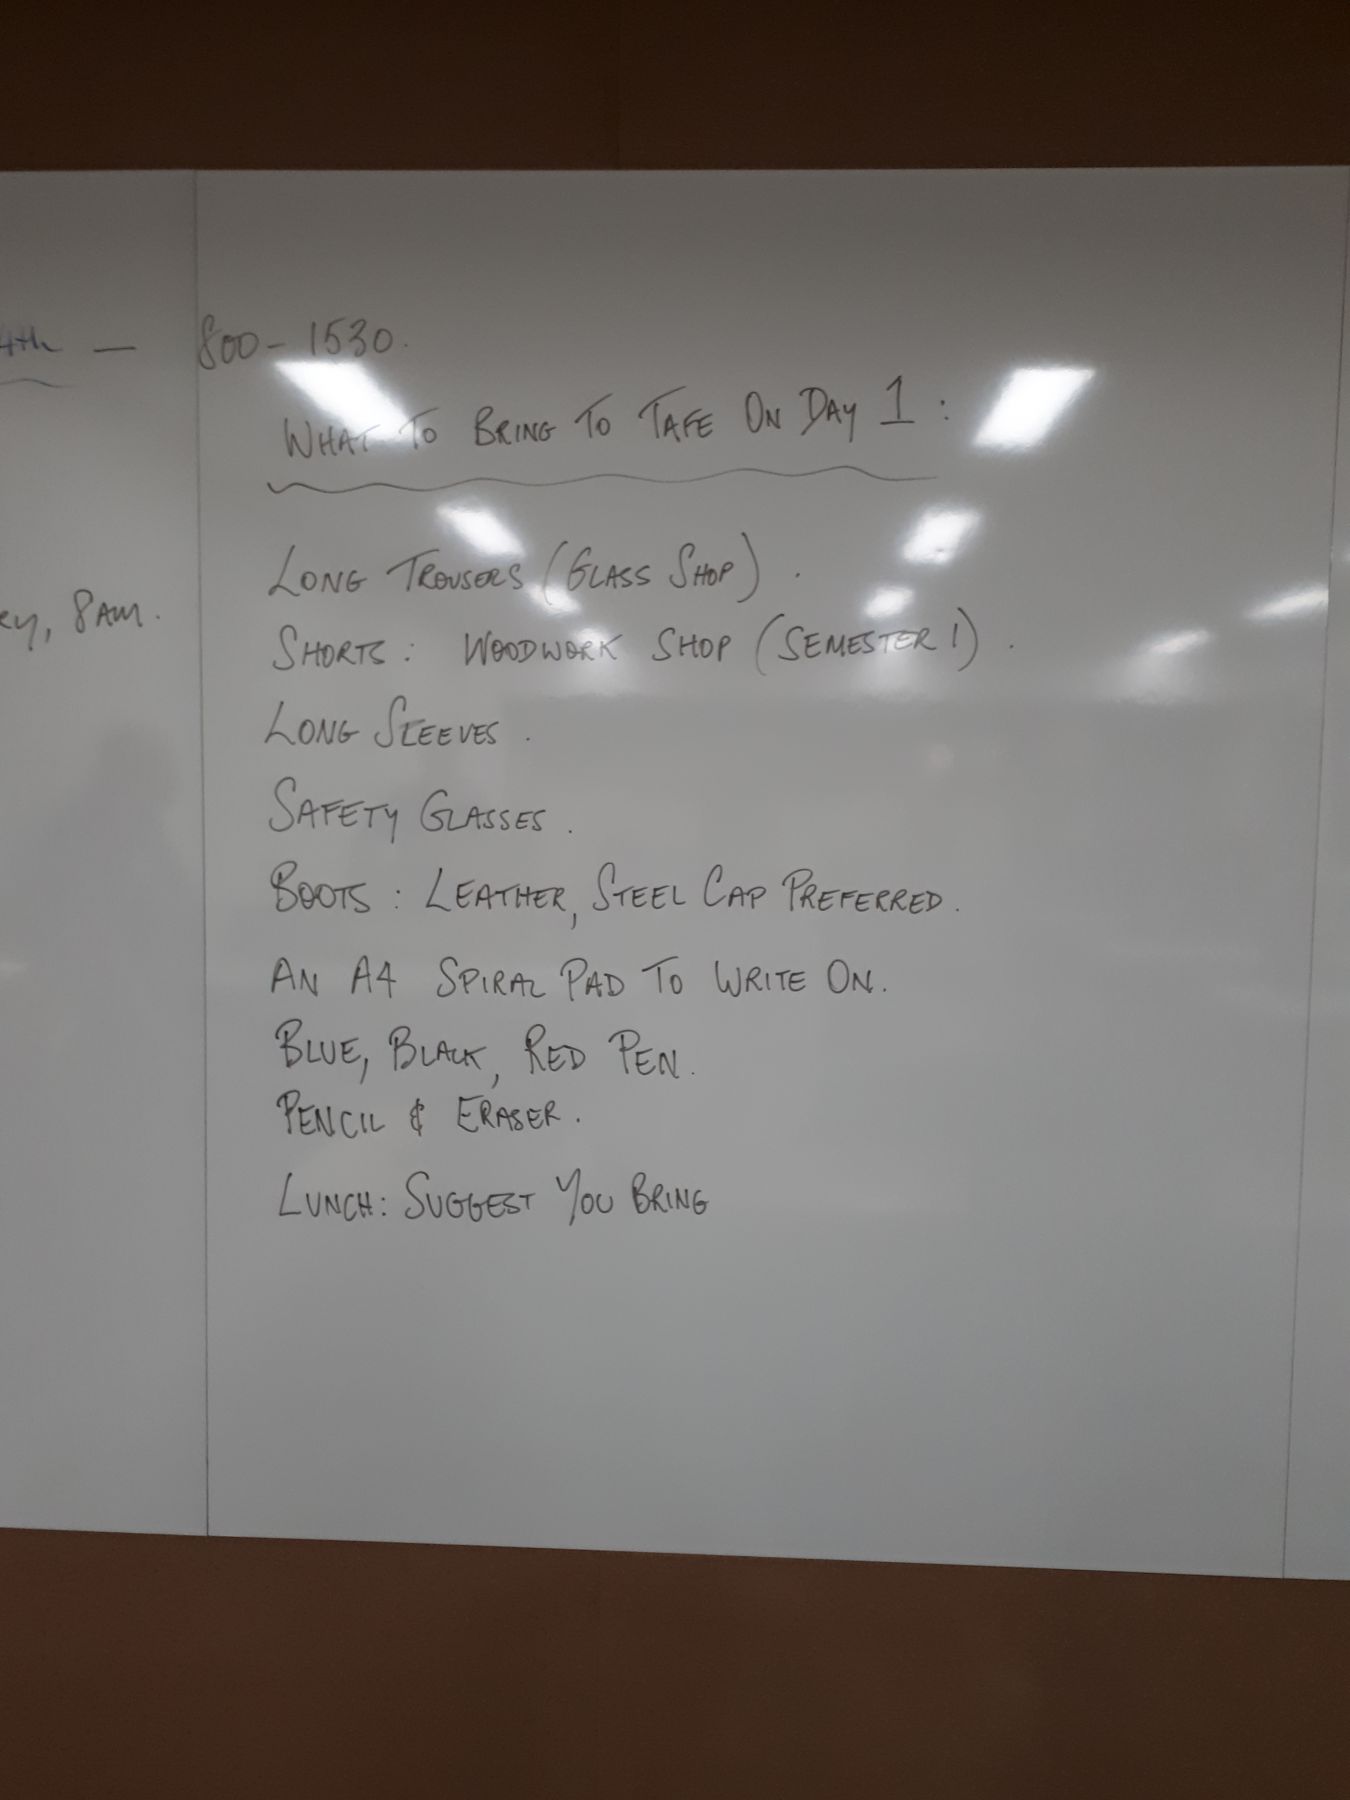 4th — 800-1530.
WHAT TO BRING TO TAFE ON DAY 1:
LONG TROUSERS (GLASS SHOP).
ey, 8AM.
SHORTS: WOODWORK SHOP (SEMESTER 1).
LONG SLEEVES.
SAFETY GLASSES.
BOOTS: LEATHER, STEEL CAP PREFERRED.
AN A4 SPIRAL PAD TO WRITE ON.
BLUE, BLACK, RED PEN.
PENCIL & ERASER.
LUNCH: SUGGEST YOU BRING